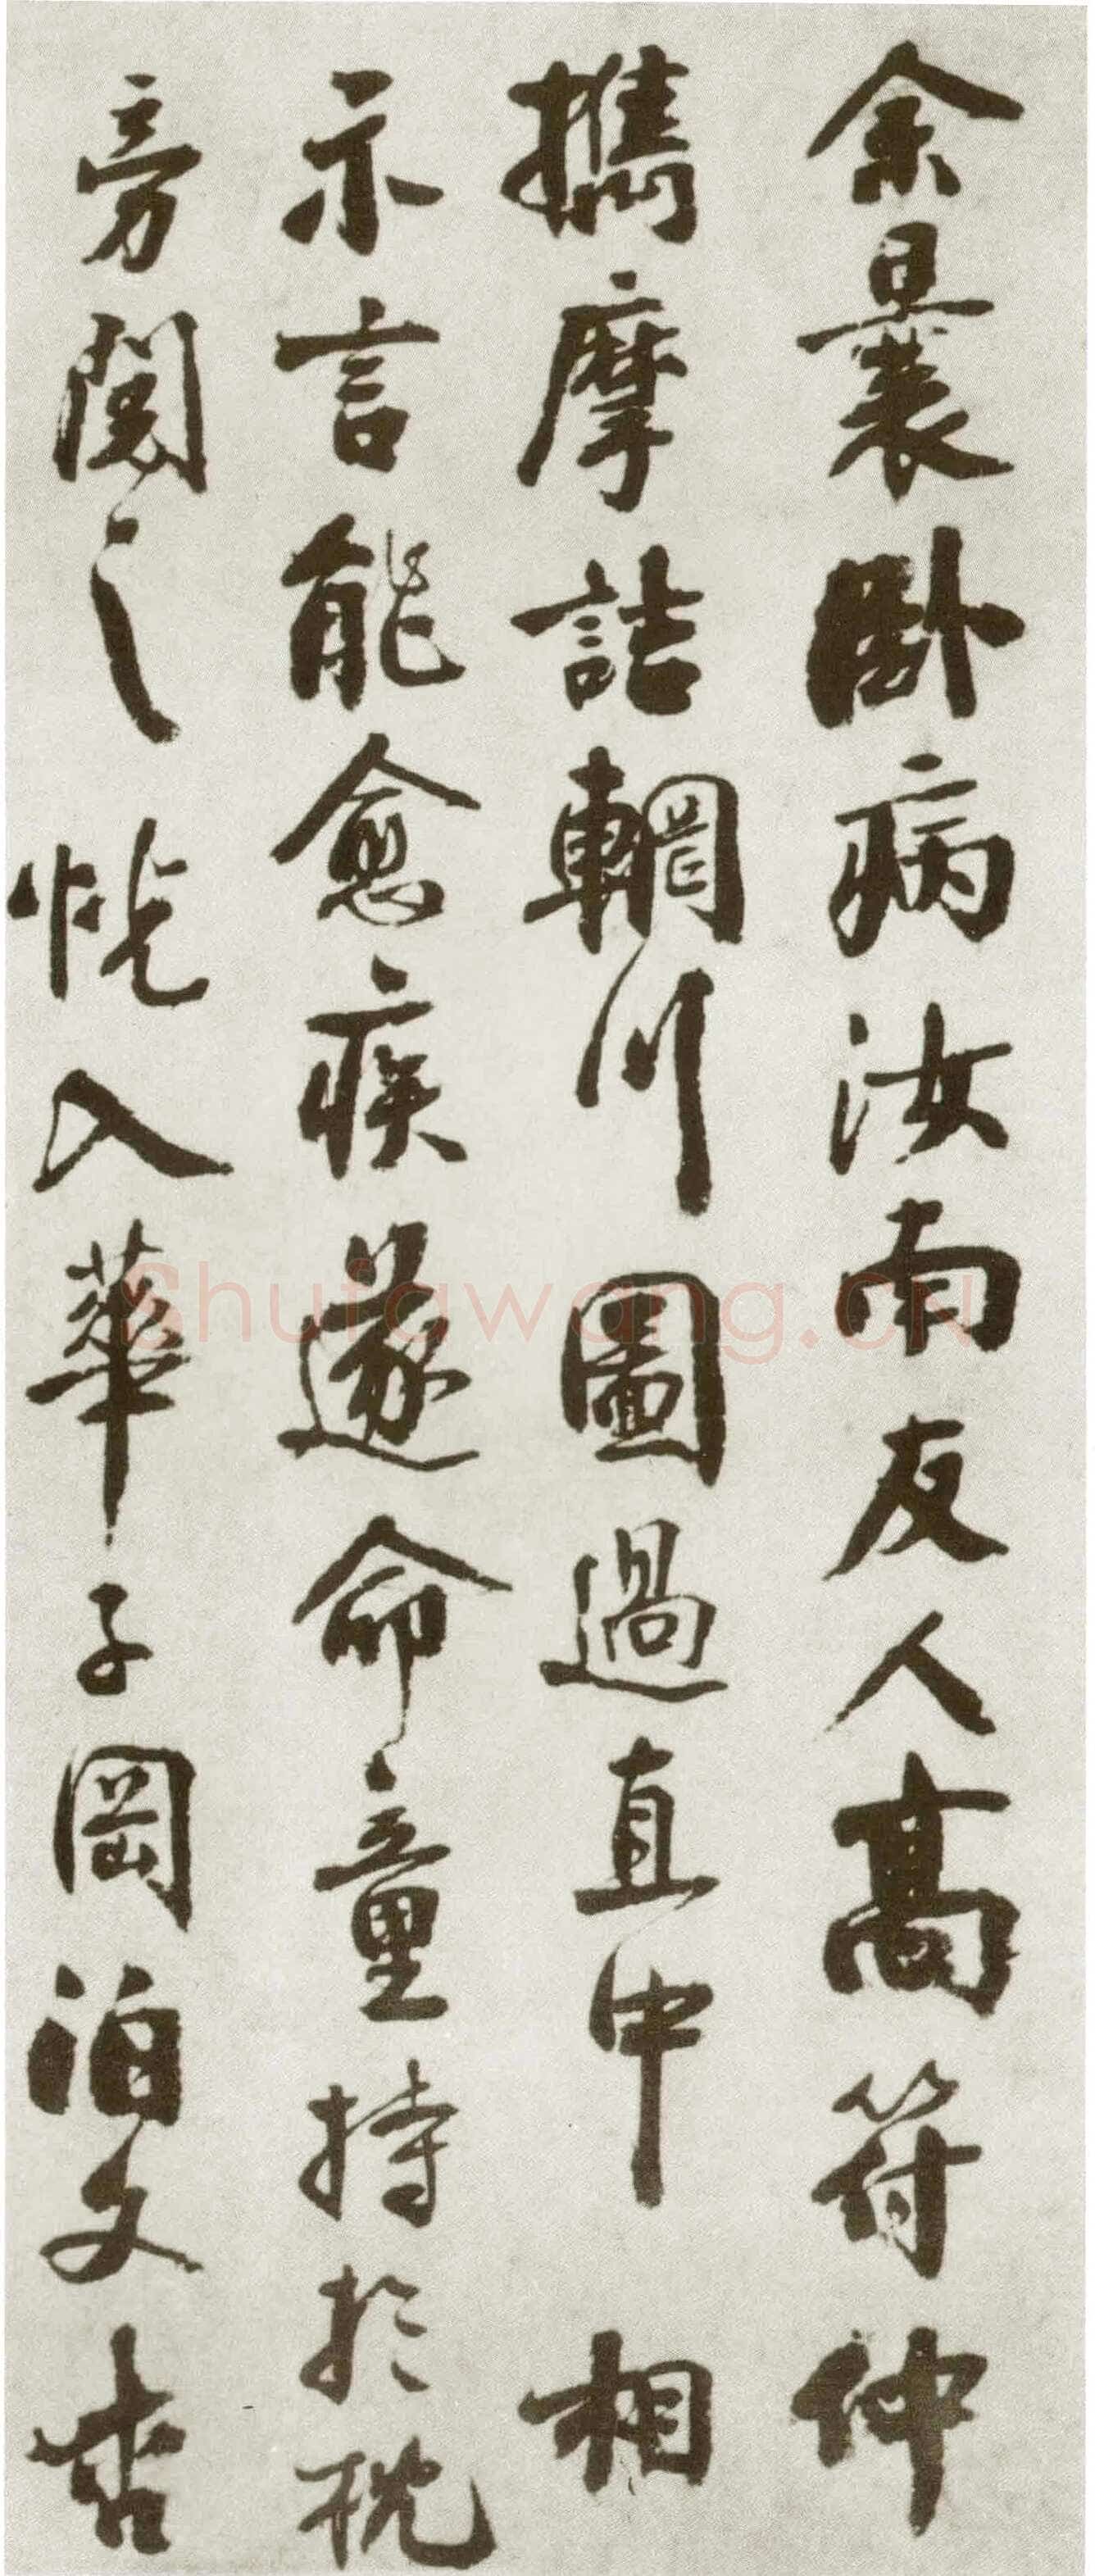 余曩卧病汝南友人高符仲
攜摩詰輞川圖過直中相
示言能愈疾遂命童持於枕
旁閱之恍入華子岡泊文杏
Shufawang.cn